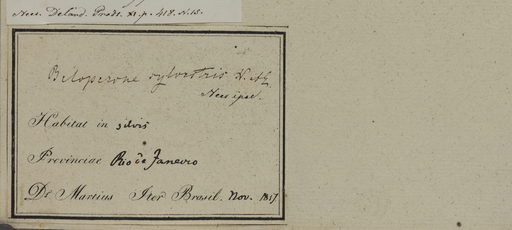 Nees. De Cand. Prodr. XI. p. 418. N. 15.
Beloperone sylvestris N. ab E.
Nees ipse.
Habitat in silvis
Provinciae Rio de Janeiro
Dr. Martius Iter Brasil. Nov. 1817